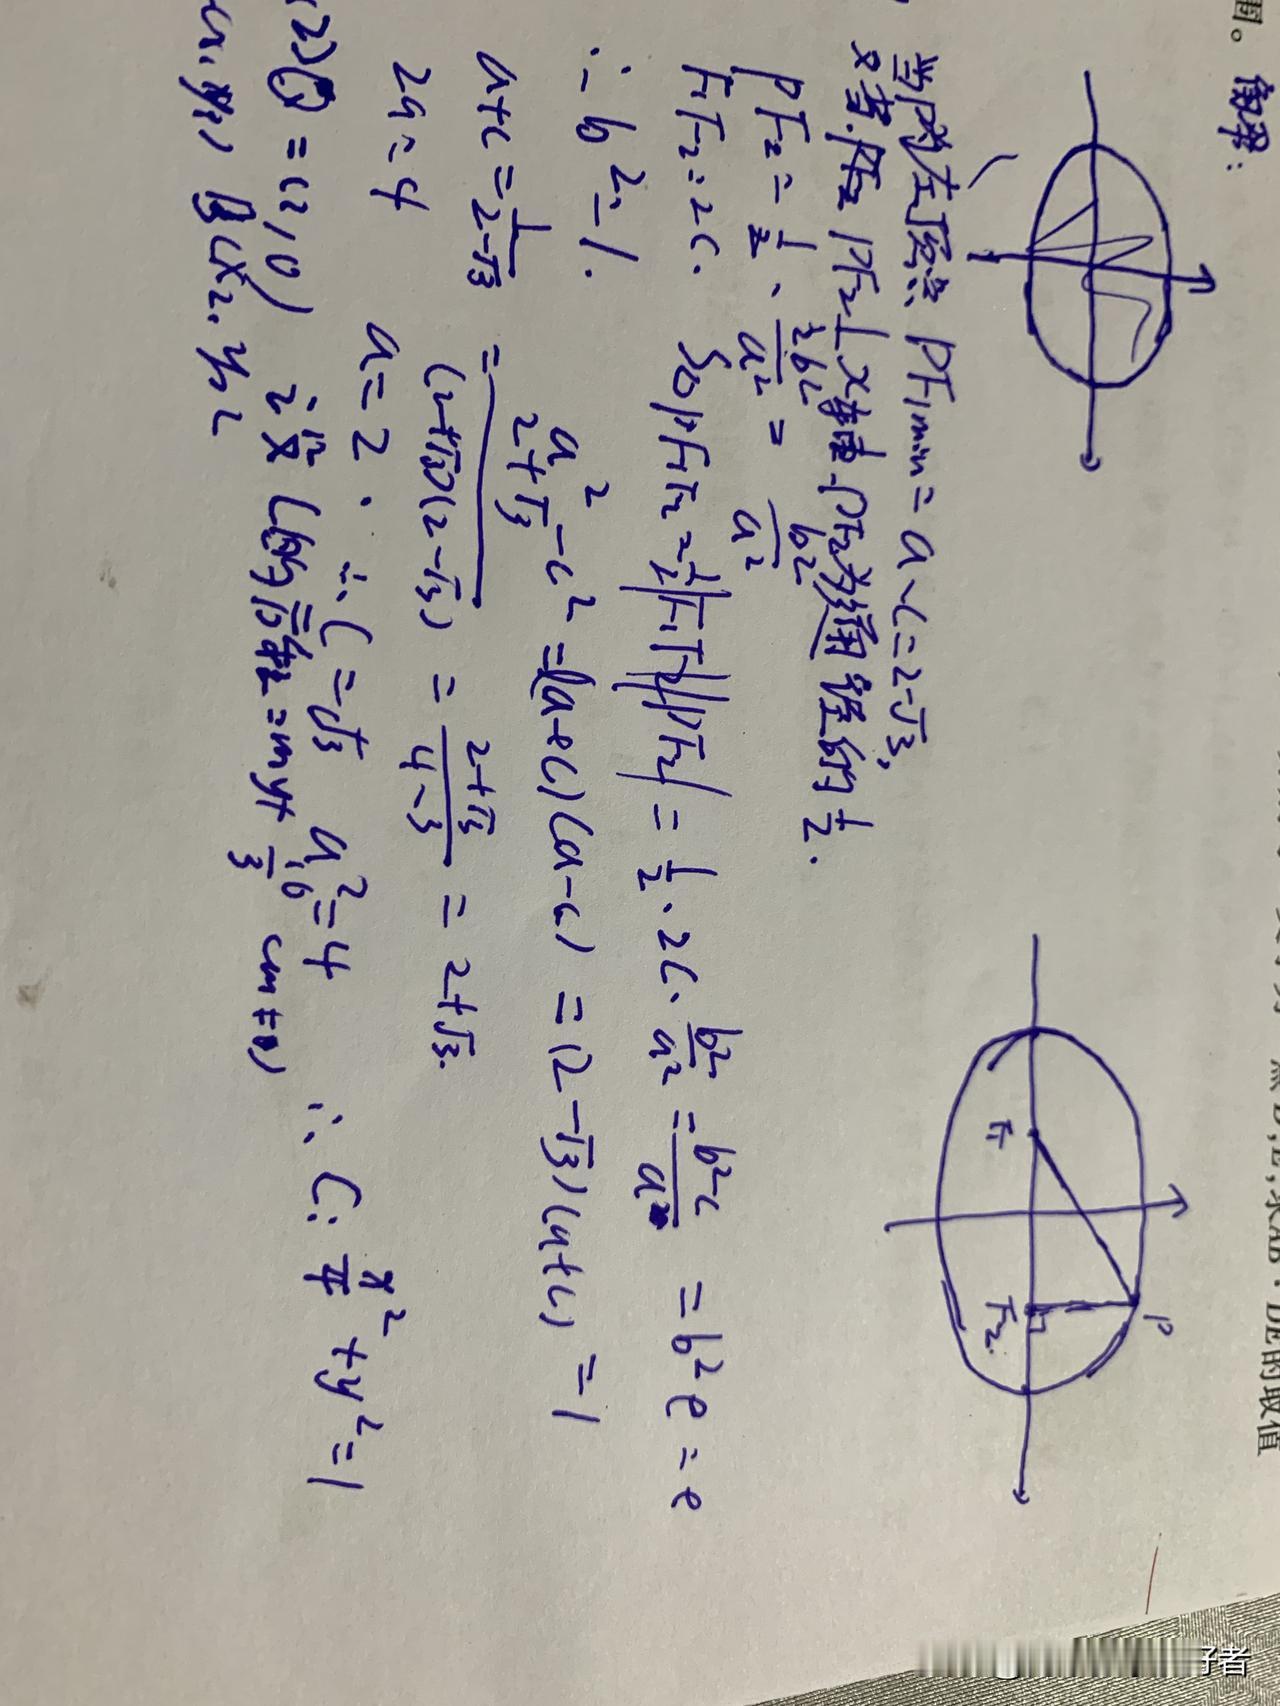 围。 解:
AB·DE的取值
F₁ F₂ P
当P为左顶点 PF₁min = a-c = 2-√3,
又当 PF₂ PF₂⊥x轴 PF₂为通径的 1/2.
PF₂ = 1/2 · 2b²/a² = b²/a²
F₁F₂ = 2c. S△PF₁F₂ = 1/2|F₁F₂||PF₂| = 1/2 · 2c · b²/a² = b²c/a = b²e = e
∴ b² = 1. a²-c² = (a+c)(a-c) = (2-√3)(a+c) = 1
a+c = 1/(2-√3) = (2+√3)/((2+√3)(2-√3)) = (2+√3)/(4-3) = 2+√3.
2a = 4 a = 2. ∴ c = √3 a² = 4 ∴ C: x²/4 + y² = 1
(2) = (2,0) 设 = my+ 6 (m≠0)
(x₁,y₁) B(x₂,y₂
者